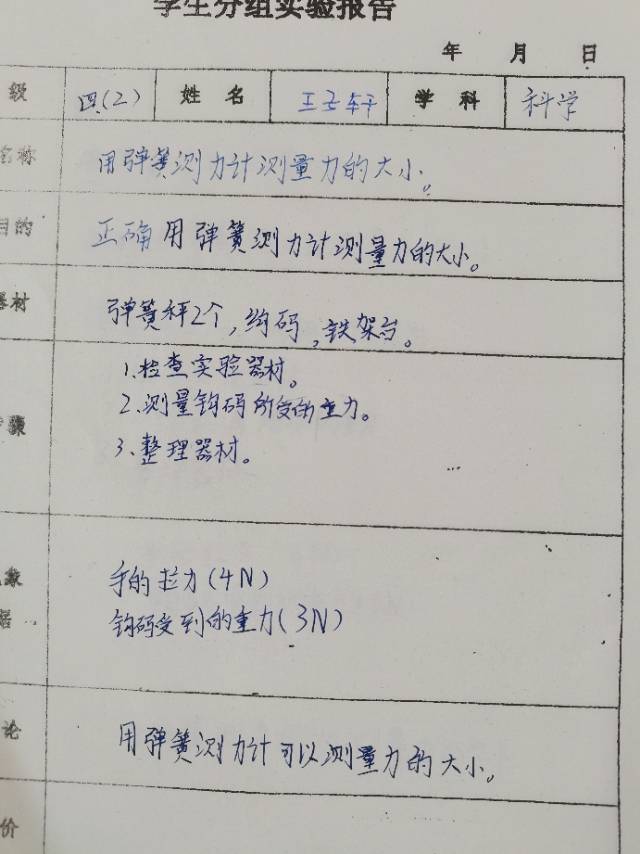 学生分组实验报告
年 月 日
级 四(2) 姓名 王子轩 学科 科学
名称 用弹簧测力计测量力的大小。
目的 正确用弹簧测力计测量力的大小。
器材 弹簧秤2个,钩码,铁架台。
1.检查实验器材。
2.测量钩码所受的重力。
骤
3.整理器材。
象 手的拉力(4N)
据 钩码受到的重力(3N)
论 用弹簧测力计可以测量力的大小。
价